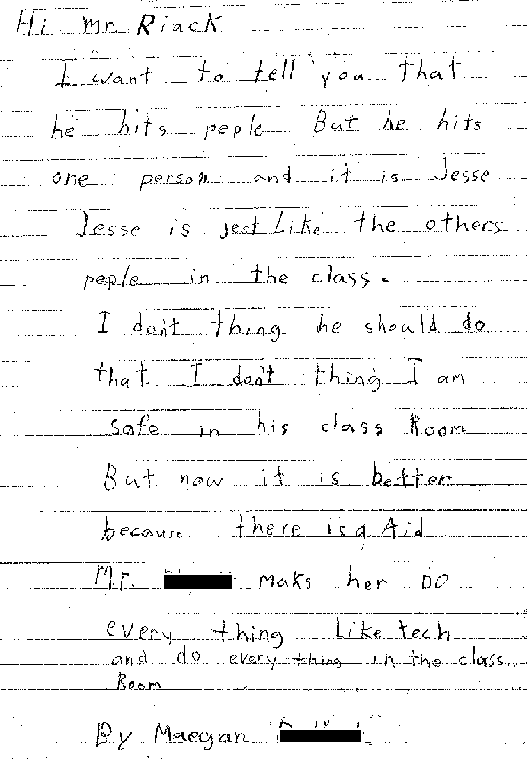 Hi Mr Riack
I want to tell you that
he hits peple But he hits
one person and it is Jesse
Jesse is jest Like the others
peple in the class.
I don't thing he should do
that I don't thing I am
safe in his class Room
But now it is better
because there is a Aid
Mr. maks her DO
every thing Like tech
and do every thing in the class
Room
By Maegan